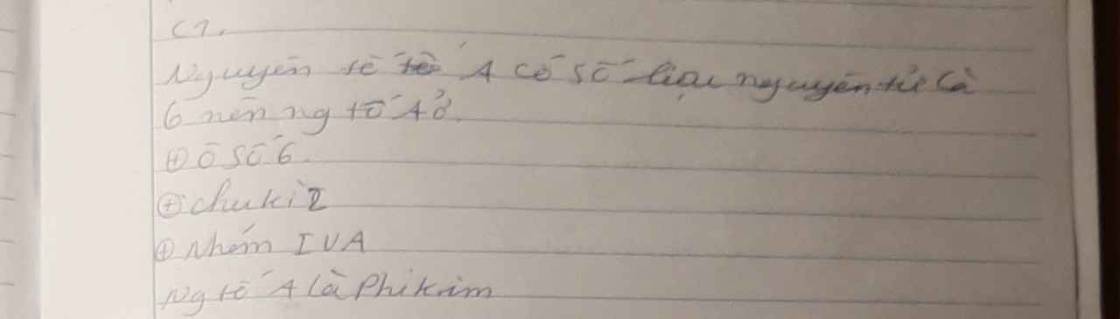 C1.
Nguyên tố A có số hiệu nguyên tử là
6 nên ng tố A ở.
⊕ ô số 6.
⊕ chu kì 2
⊕ Nhóm IVA
Ng tố A là Phi kim